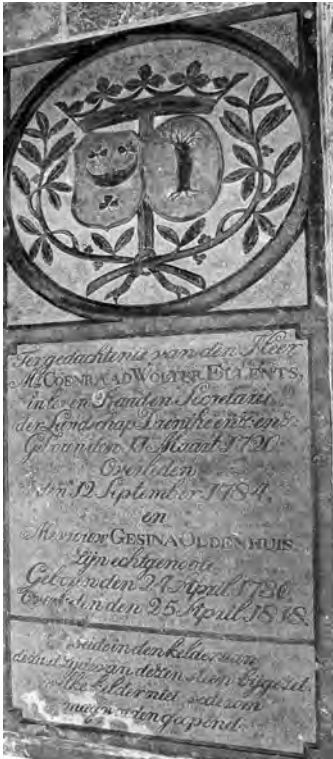 Ter gedachtenis van den Heer
Mr. COENRAAD WOLTER ELLENTS,
in leven Secretaris
der Landschap Drenthe
Geboren den 17 Maart 1720.
Overleden
den 12 September 1784.
en
Mevrouw GESINA OLDENHUIS
Zijn echtgenote.
Geboren den 24 April 1730.
Overleden den 25 April 1818.
Beide in den kelder aan
de zijde van dezen steen bijgezet.
welke kelder niet wederom
mag worden geopend.